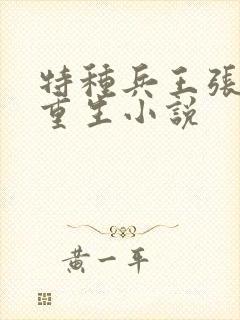 特種兵王張
重生小說
黃一平